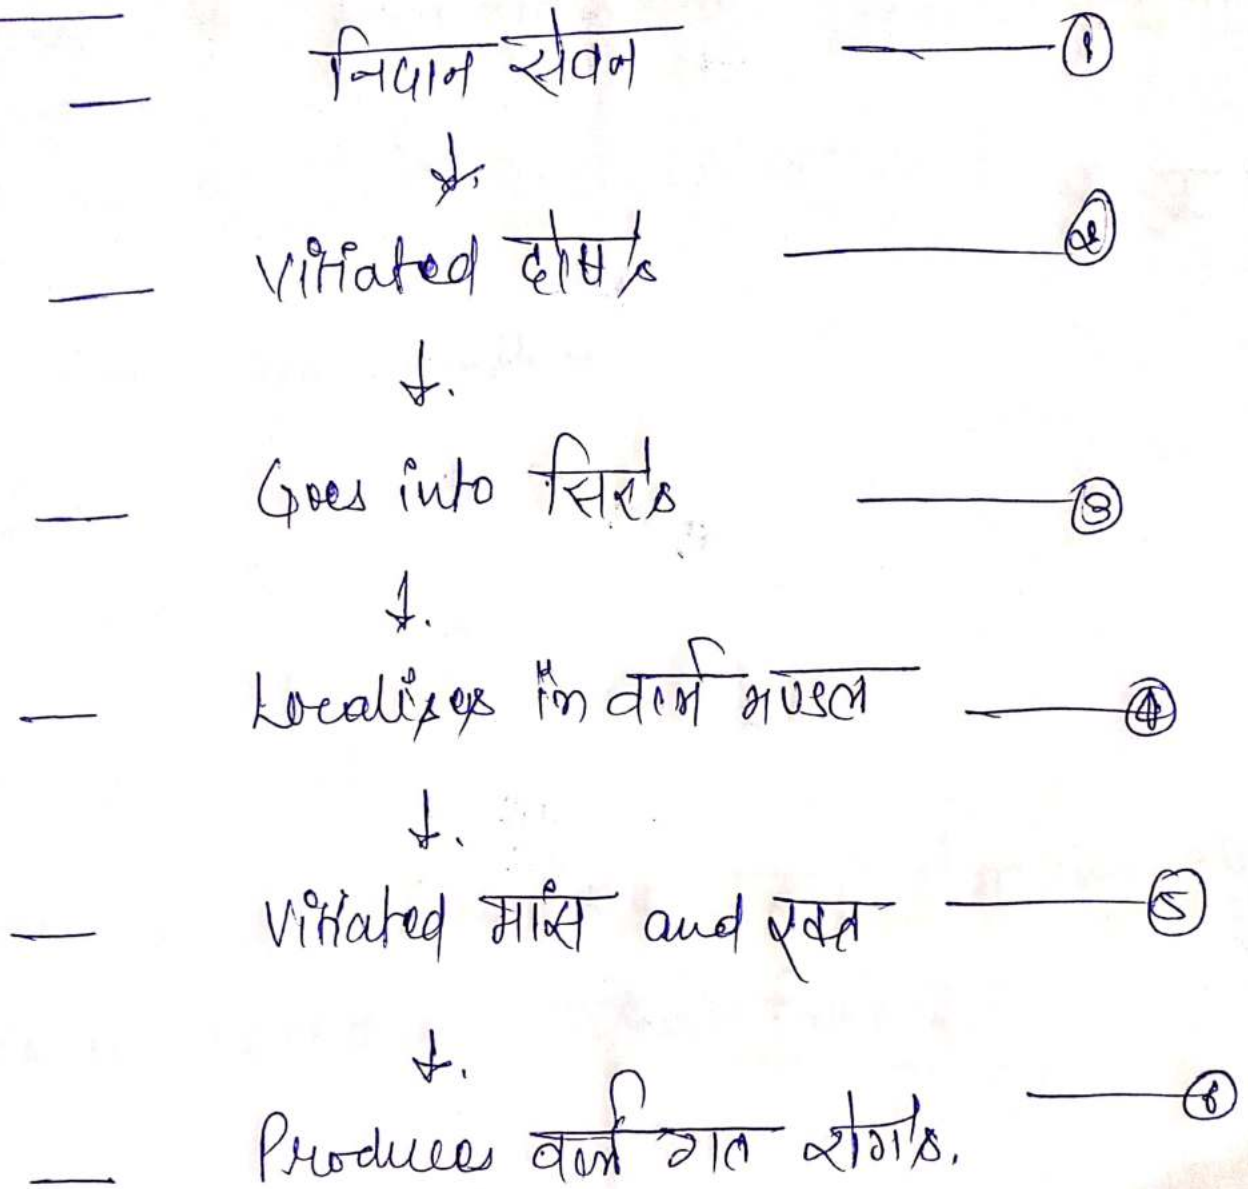 निदान सेवन — ①
Vitiated दोष's — ②
Goes into सिरा's — ③
Localises in वर्त्म मण्डल — ④
Vitiated मांस and रक्त — ⑤
Produces वर्त्म गत रोग's. — ⑥